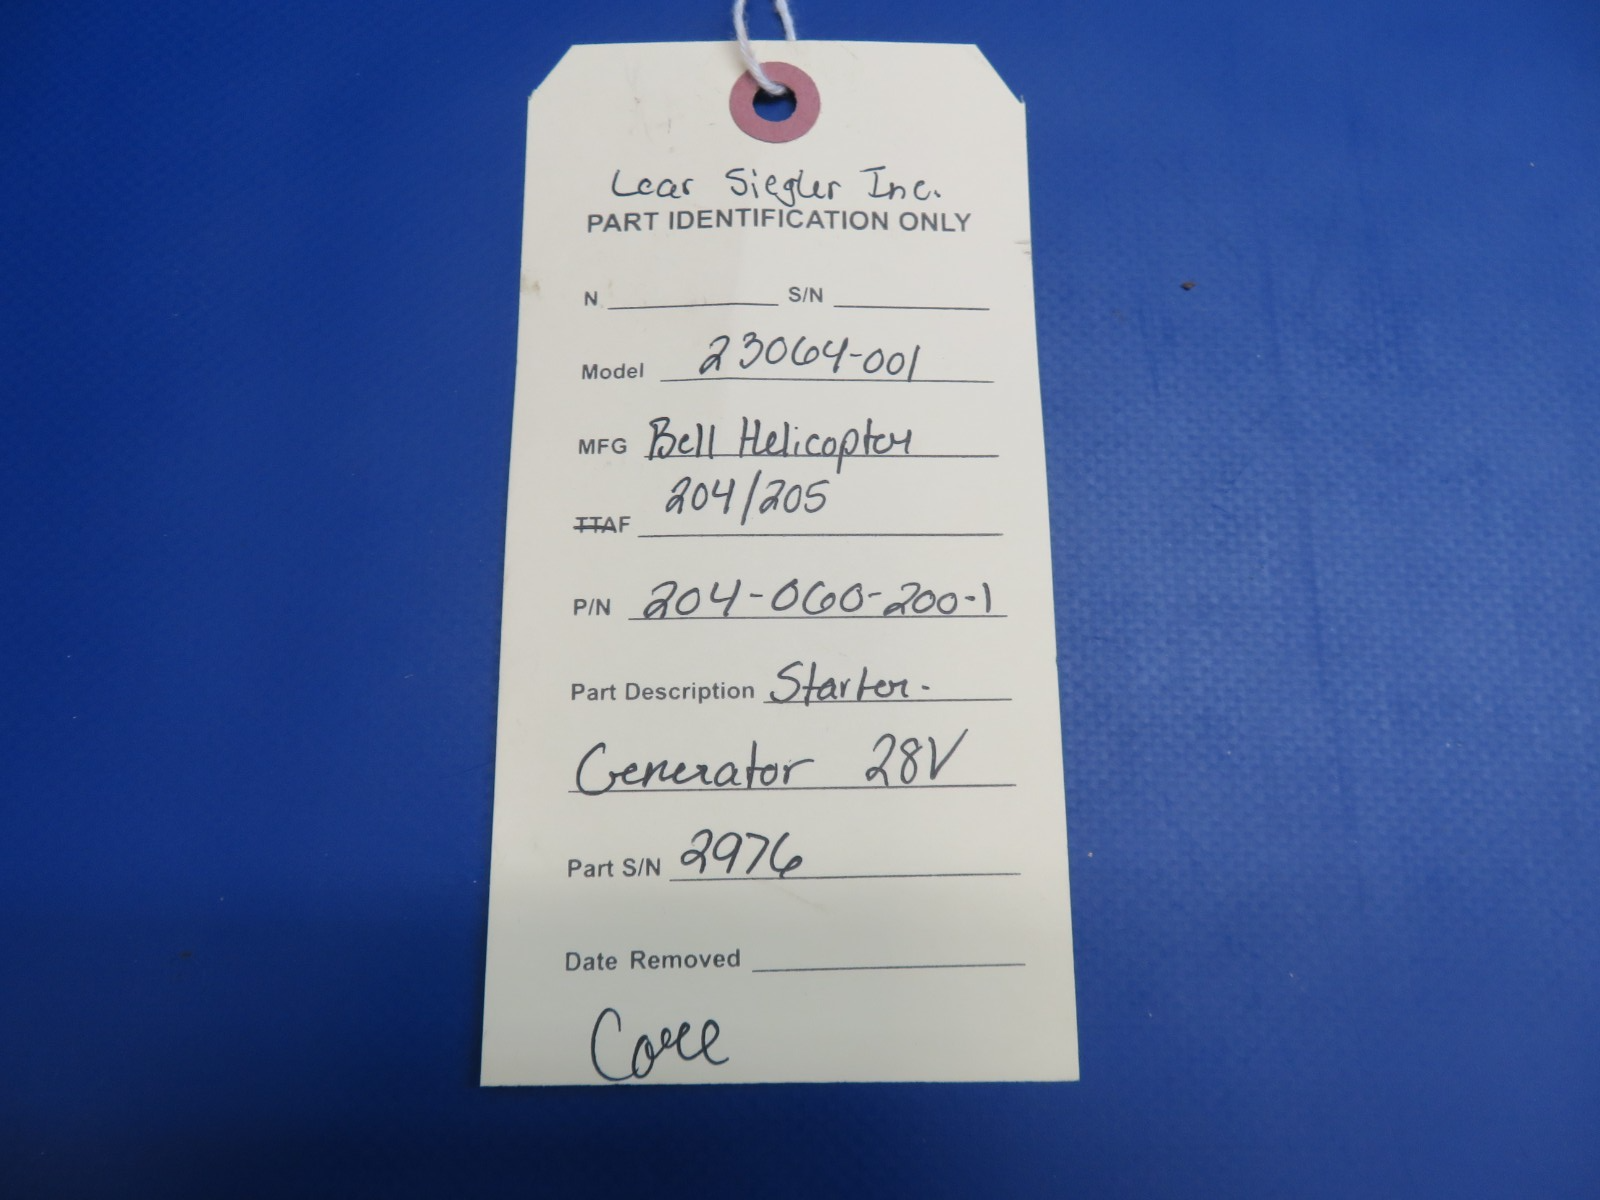 Lear Siegler Inc.
PART IDENTIFICATION ONLY
N S/N
Model 23064-001
MFG Bell Helicopter
TTAF 204/205
P/N 204-060-200-1
Part Description Starter-
Generator 28V
Part S/N 2976
Date Removed
Core